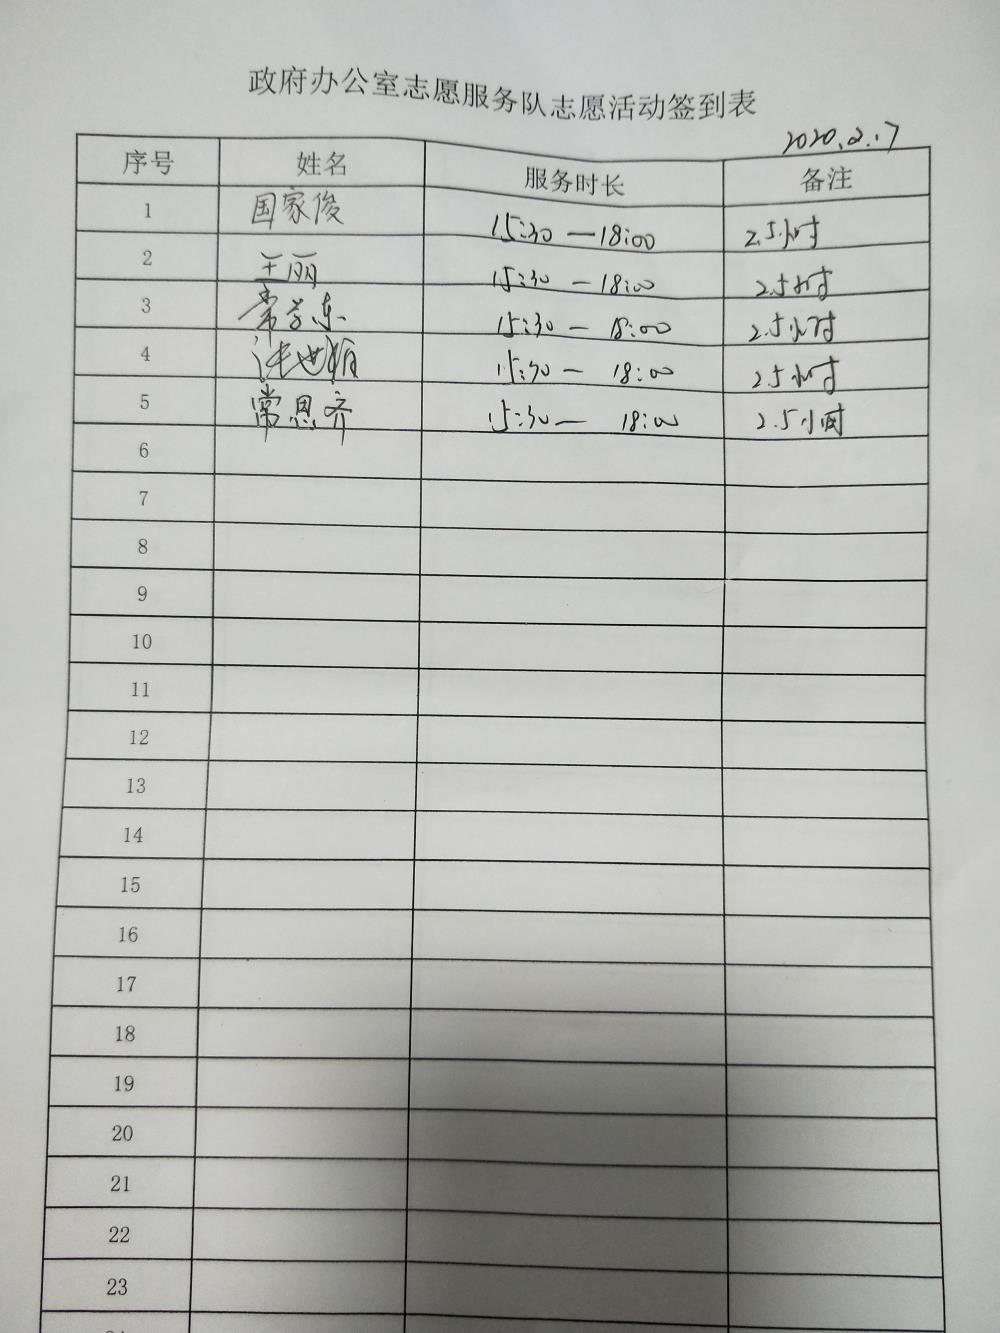 政府办公室志愿服务队志愿活动签到表
2020.2.17
序号 姓名 服务时长 备注
1 国家俊 15:30—18:00 2.5小时
2 王丽 15:30—18:00 2.5小时
3 常学东 15:30—18:00 2.5小时
4 15:30—18:00 2.5小时
5 常恩齐 15:30—18:00 2.5小时
6
7
8
9
10
11
12
13
14
15
16
17
18
19
20
21
22
23